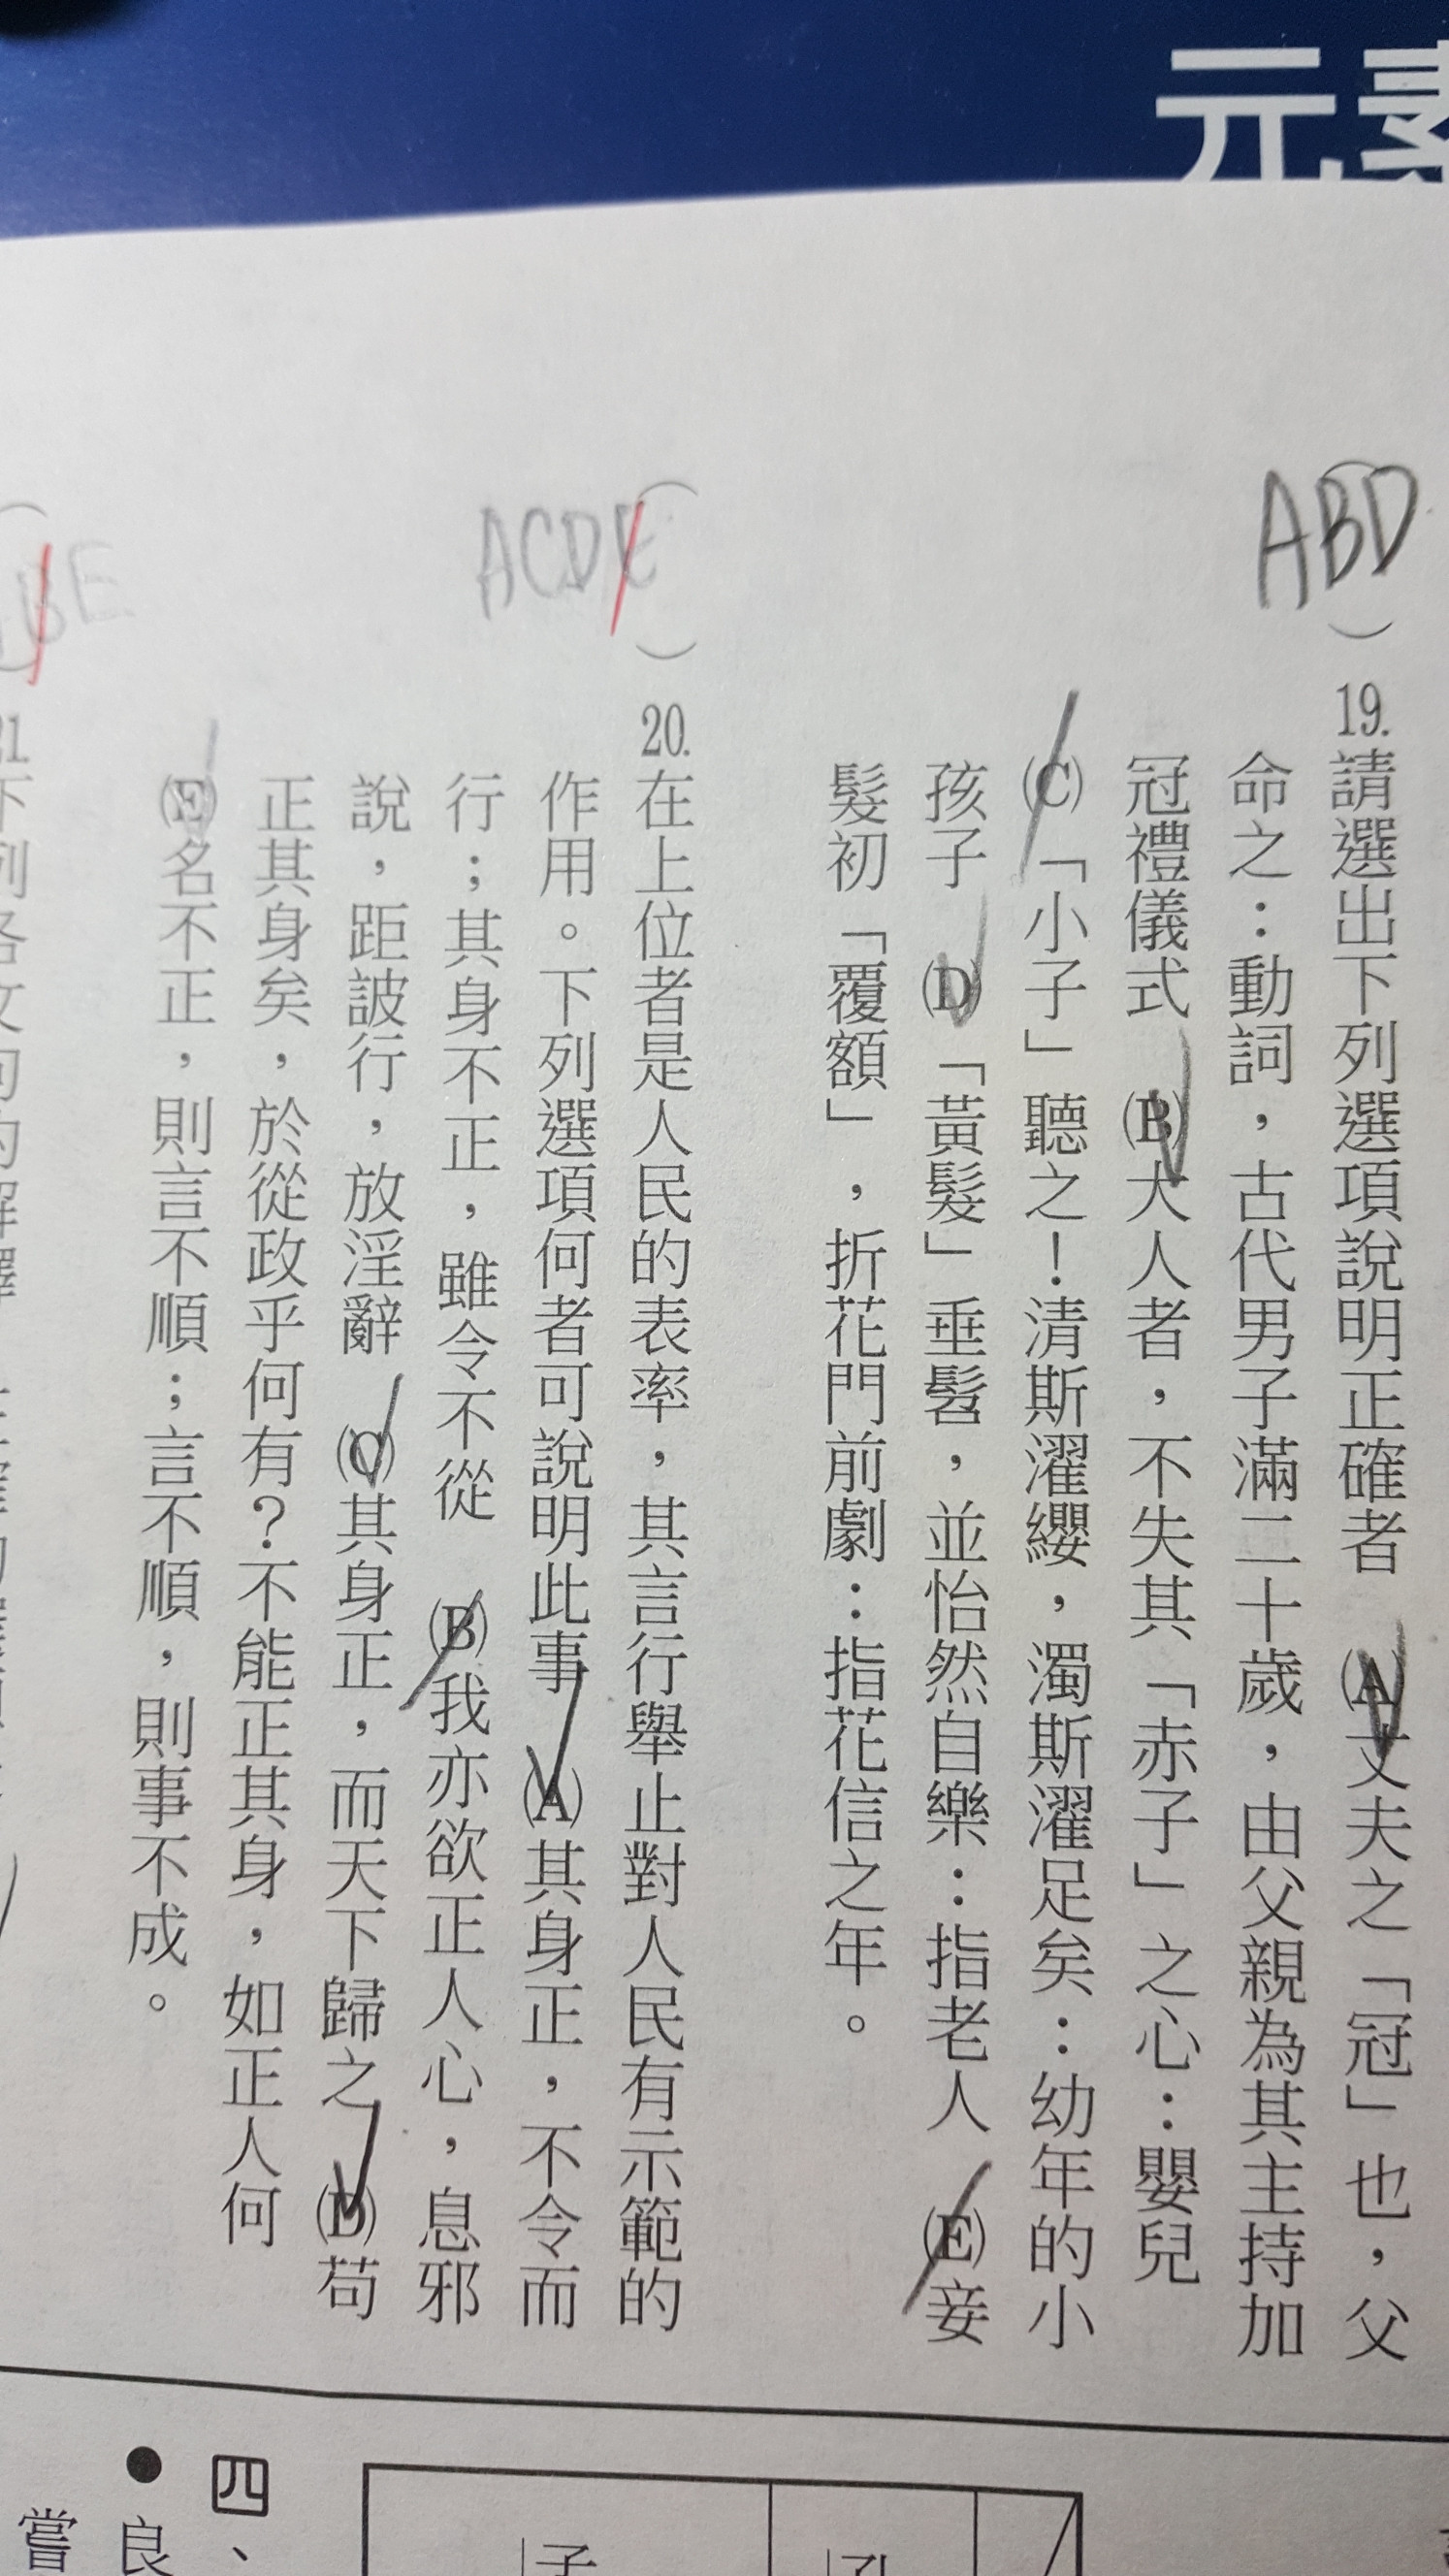 元素
ABD
19.請選出下列選項說明正確者　(A)丈夫之「冠」也，父
命之：動詞，古代男子滿二十歲，由父親為其主持加
冠禮儀式　(B)大人者，不失其「赤子」之心：嬰兒
(C)「小子」聽之！清斯濯纓，濁斯濯足矣：幼年的小
孩子　(D)「黃髮」垂髫，並怡然自樂：指老人　(E)妾
髮初「覆額」，折花門前劇：指花信之年。
ACDE
20.在上位者是人民的表率，其言行舉止對人民有示範的
作用。下列選項何者可說明此事　(A)其身正，不令而
行；其身不正，雖令不從　(B)我亦欲正人心，息邪
說，距詖行，放淫辭　(C)其身正，而天下歸之　(D)苟
正其身矣，於從政乎何有？不能正其身，如正人何
(E)名不正，則言不順；言不順，則事不成。
BE
21.下列各文句的解釋
四、
●良
嘗